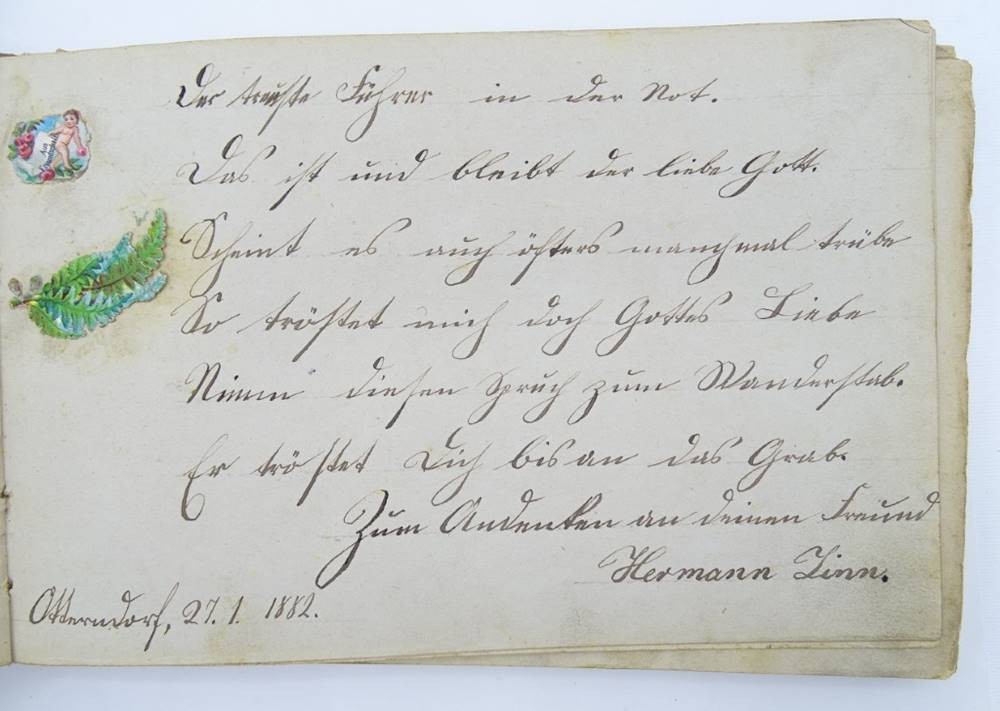 Der treuste Führer in der Not.
Das ist und bleibt der liebe Gott.
Scheint es auch öfters manchmal trübe
So tröstet mich doch Gottes Liebe
Nimm diesen Spruch zum Wanderstab.
Er tröstet Dich bis an das Grab.
Zum Andenken an deinen Freund
Hermann
Otterndorf, 27. 1. 1882.